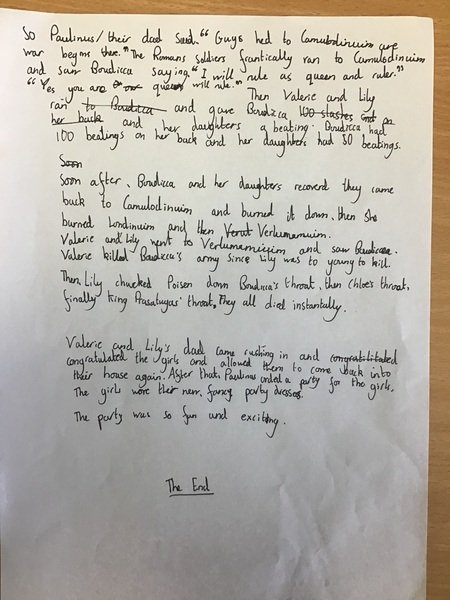 So Paulinus/their dad said. "Guys hed to Camulodinuim are
war begins there." The Romans soldiers frantically ran to Camulodinuim
and saw Boudicca saying, "I will rule as queen and ruler."
"Yes you are our queen will rule." Then Valerie and Lily
ran to Boudicca and gave Boudicca 100 slashes and on
her back and her daughters a beating. Boudicca had
100 beatings on her back and her daughters had 50 beatings.
Soon
Soon after, Boudicca and her daughters recoverd they came
back to Camulodinuim and burned it down, then she
burned Londinuim and then Verut Verlumamuim.
Valerie and Lily went to Verlumamiuim and saw Boudicca.
Valerie killed Boudicca's army since Lily was to young to kill.
Then, Lily chucked Poisen down Boudicca's throat, then Chloe's throat,
finally king Prasatugas' throat, They all died instantally.
Valerie and Lily's dad came rushing in and congratilitated
congratulated the girls and allowed them to come back into
their house again. After that, Paulinus orded a party for the girls.
The girls wore their new, fancy party dresses.
The party was so fun and exciting.
The End